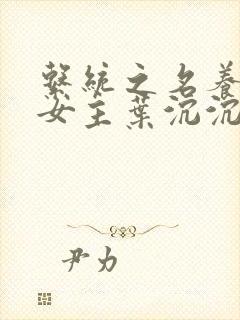 繫統之名養
女主葉沉沉
尹力